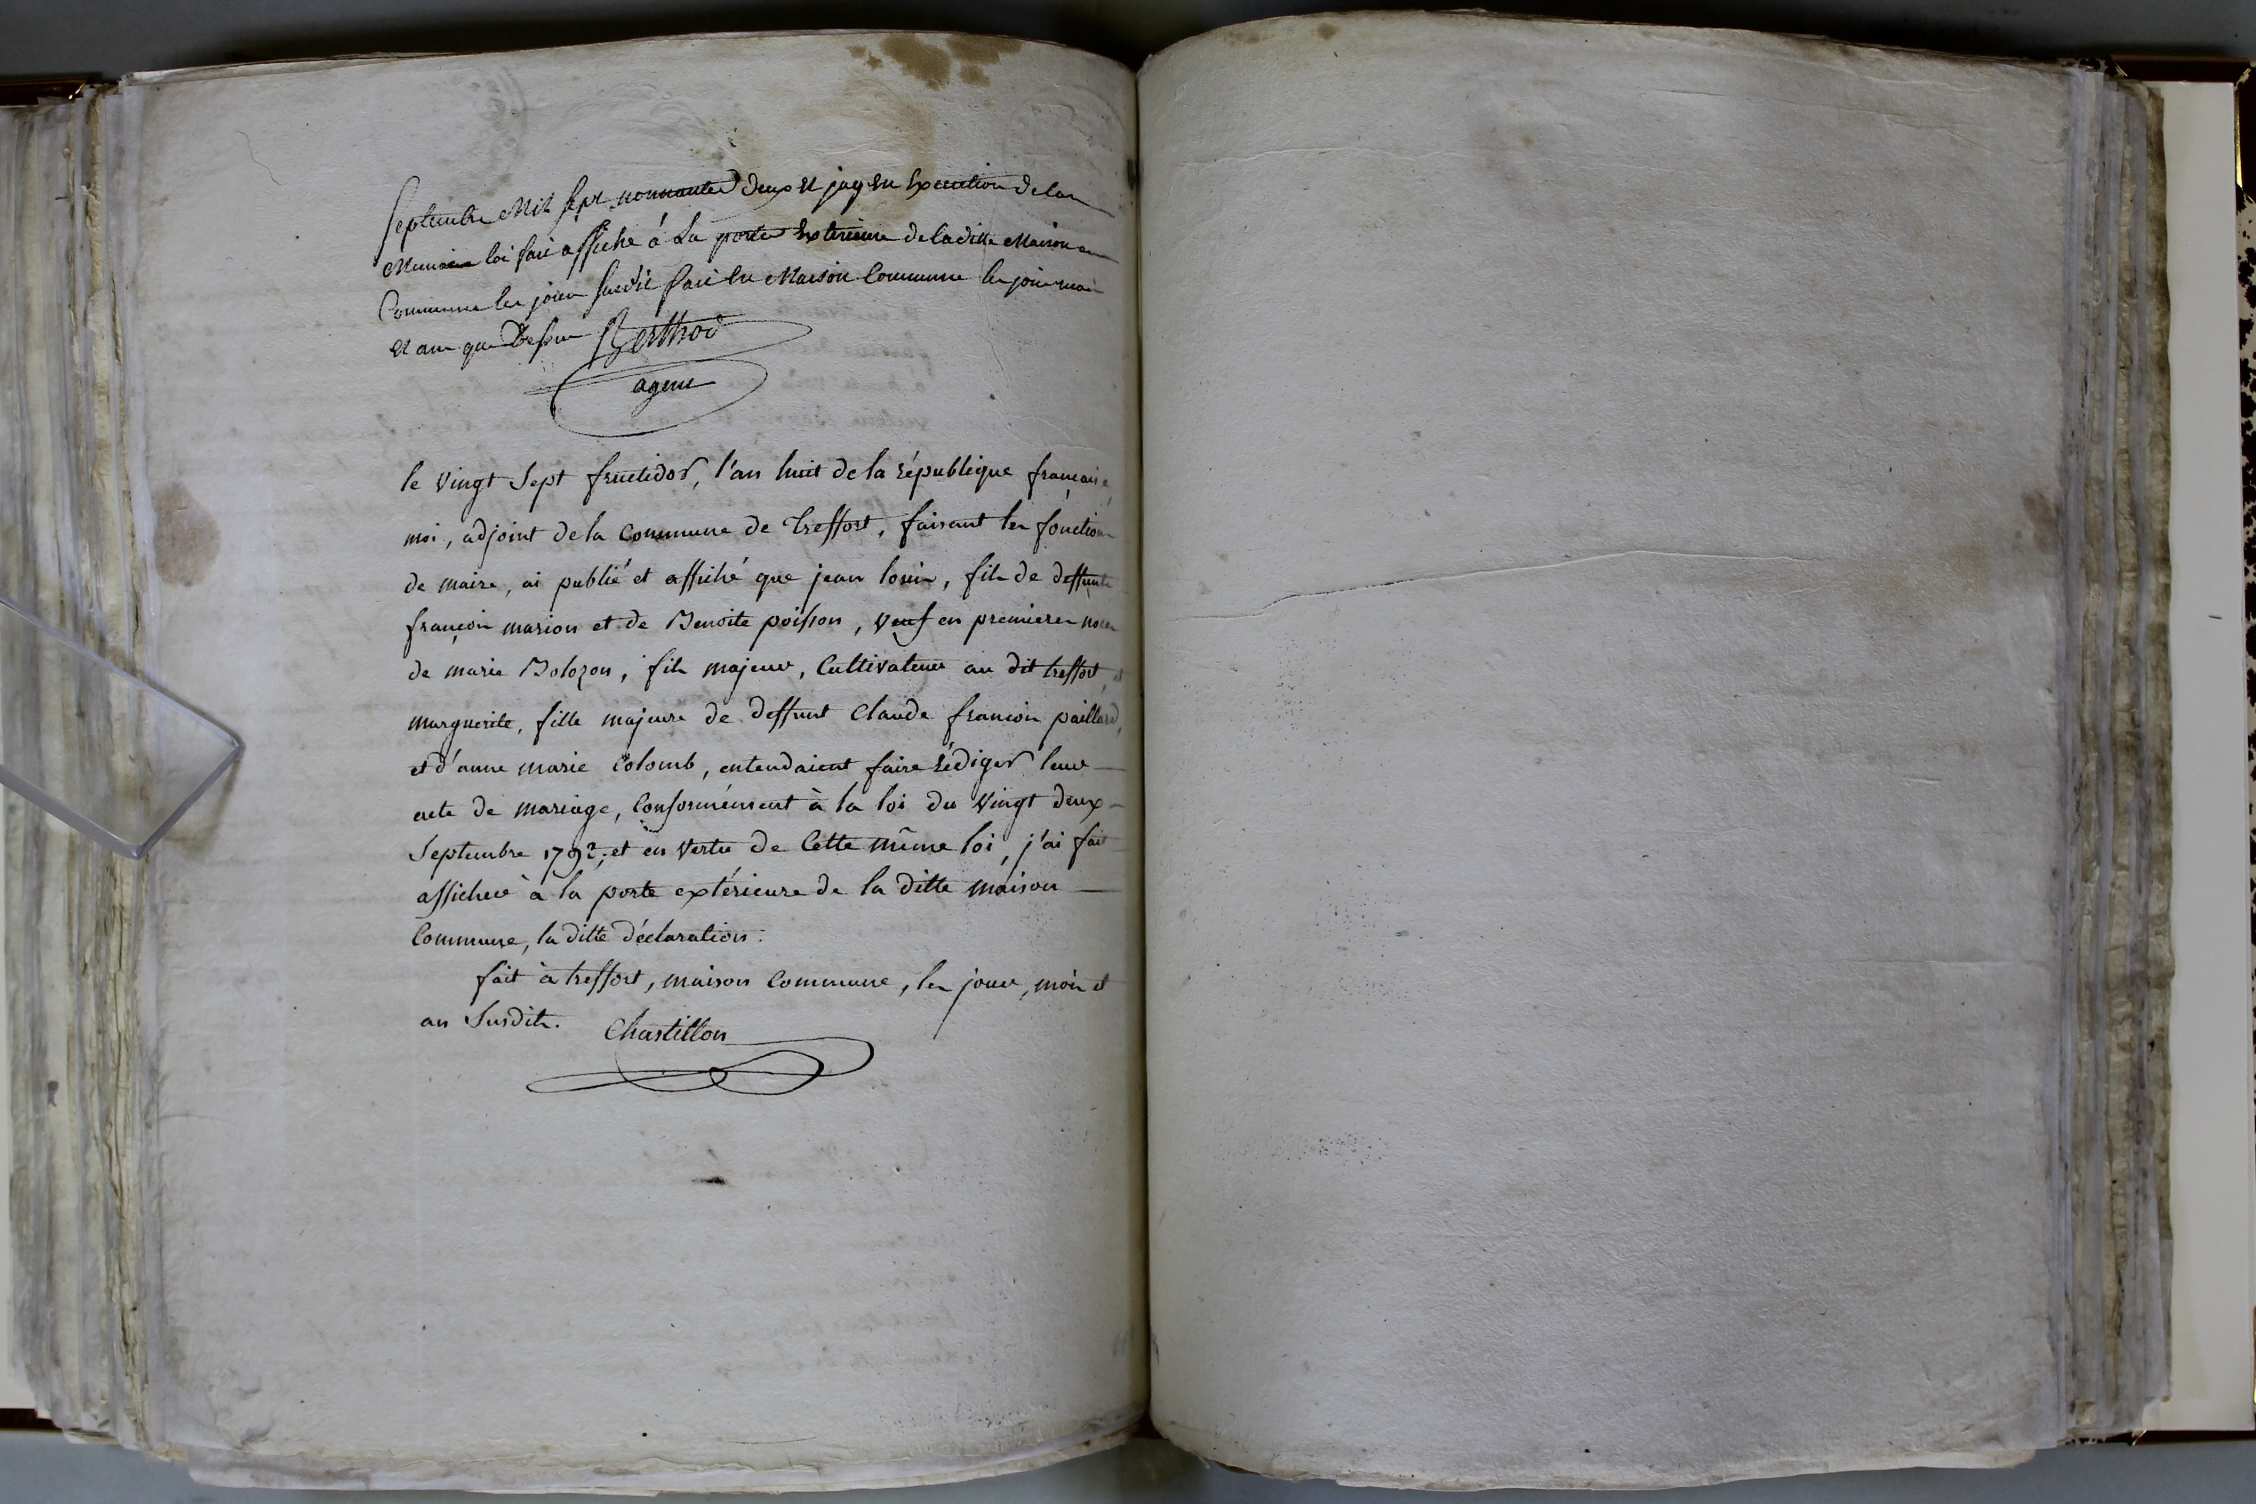 Septembre Mil sept nonnante deux et jay en Execution de la
Meme loi fait affiché á La porte Exterieure de laditte Maison
Commune les jour susdit fait En Maison Commune les jour mois
et an que Dessus Berthod
agent
le vingt sept fructidor, l'an huit de la république française
moi, adjoint de la Commune de treffort, faisant les fonctions
de maire, ai publié et affiché que jean louis, fils de deffunts
françois marion et de Benoite poisson, veuf en premieres noces
de marie Bolozon, fils majeur, Cultivateur au dit treffort, et
marguerite, fille majeure de deffunt Claude françois paillard,
et d'anne marie Colomb, entendaient faire rédiger leur
acte de mariage, Conformément à la loi du vingt deux
Septembre 1792; et en vertu de Cette même loi, j'ai fait
afficher à la porte extérieure de la ditte maison
Commune, la ditte déclaration.
fait à treffort, maison Commune, les jour, mois et
an susdits. Chastillon